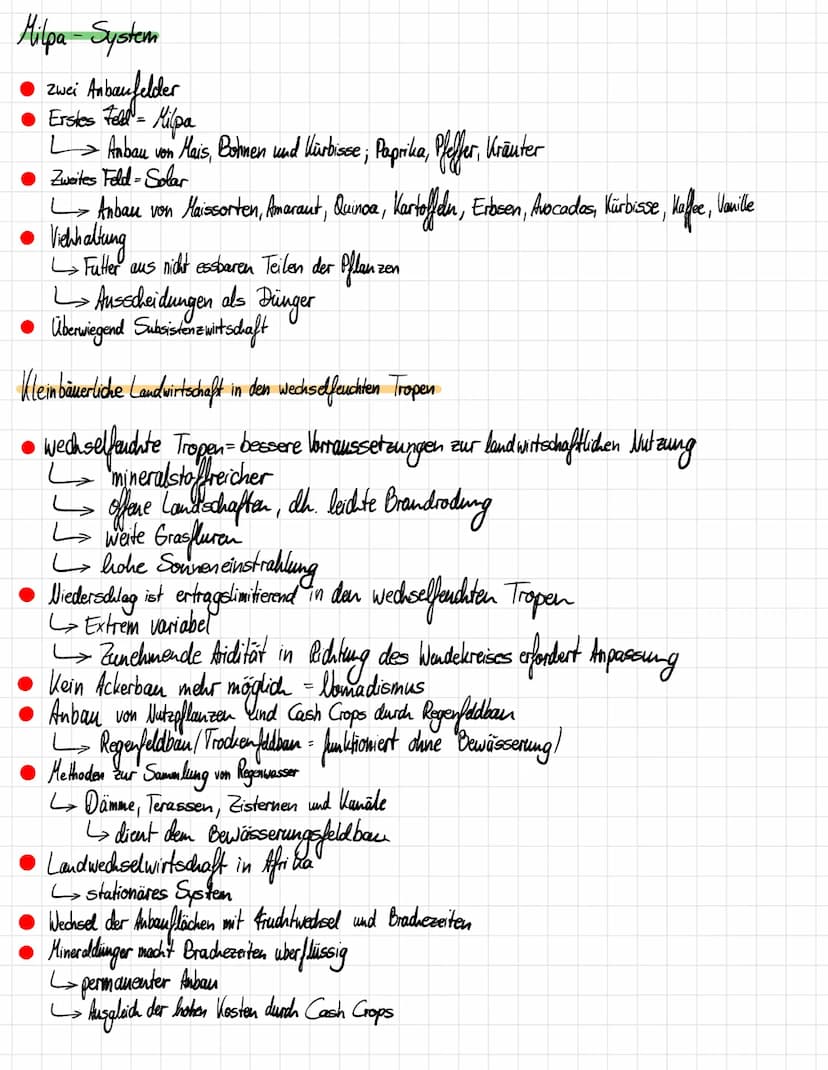 Milpa - System
• zwei Anbaufelder
• Erstes Feld = Milpa
↳ Anbau von Mais, Bohnen und Kürbisse; Paprika, Pfeffer, Kräuter
• Zweites Feld = Solar
↳ Anbau von Maissorten, Amarant, Quinoa, Kartoffeln, Erbsen, Avocados, Kürbisse, Kaffee, Vanille
• Viehhaltung
↳ Futter aus nicht essbaren Teilen der Pflanzen
↳ Ausscheidungen als Dünger
• Überwiegend Subsistenzwirtschaft
Kleinbäuerliche Landwirtschaft in den wechselfeuchten Tropen
• wechselfeuchte Tropen = bessere Vorraussetzungen zur landwirtschaftlichen Nutzung
↳ mineralstoffreicher
↳ offene Landschaften, dh. leichte Brandrodung
↳ weite Grasfluren
↳ hohe Sonneneinstrahlung
• Niederschlag ist ertragslimitierend in den wechselfeuchten Tropen
↳ Extrem variabel
↳ Zunehmende Aridität in Richtung des Wendekreises erfordert Anpassung
• Kein Ackerbau mehr möglich = Nomadismus
• Anbau von Nutzpflanzen und Cash Crops durch Regenfeldbau
↳ Regenfeldbau/Trockenfeldbau = funktioniert ohne Bewässerung!
• Methoden zur Sammlung von Regenwasser
↳ Dämme, Terassen, Zisternen und Kanäle
↳ dient dem Bewässerungsfeldbau
• Landwechselwirtschaft in Afrika
↳ stationäres System
• Wechsel der Anbauflächen mit Fruchtwechsel und Brachezeiten
• Mineraldünger macht Brachezeiten überflüssig
↳ permanenter Anbau
↳ Ausgleich der hohen Kosten durch Cash Crops